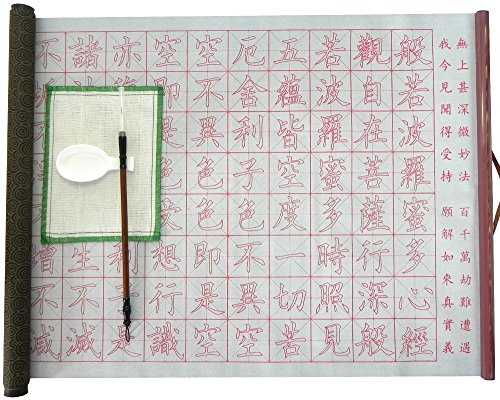 無上甚深微妙法 百千萬劫難遭遇
我今見聞得受持 願解如來真實義
般若波羅蜜多心經
觀自在菩薩行深般
若波羅蜜多時照見
五蘊皆空度一切苦
厄舍利子色不異空
空不異色色即是空
空即是色受想行識
亦利子是
諸生不滅
不增不減